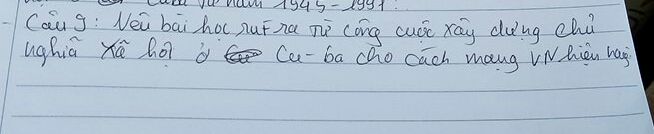 Cuba từ năm 1945-1991:
- Câu 9: Nêu bài học rút ra từ công cuộc xây dựng chủ
nghĩa xã hội ở Cu-ba cho cách mạng VN hiện nay